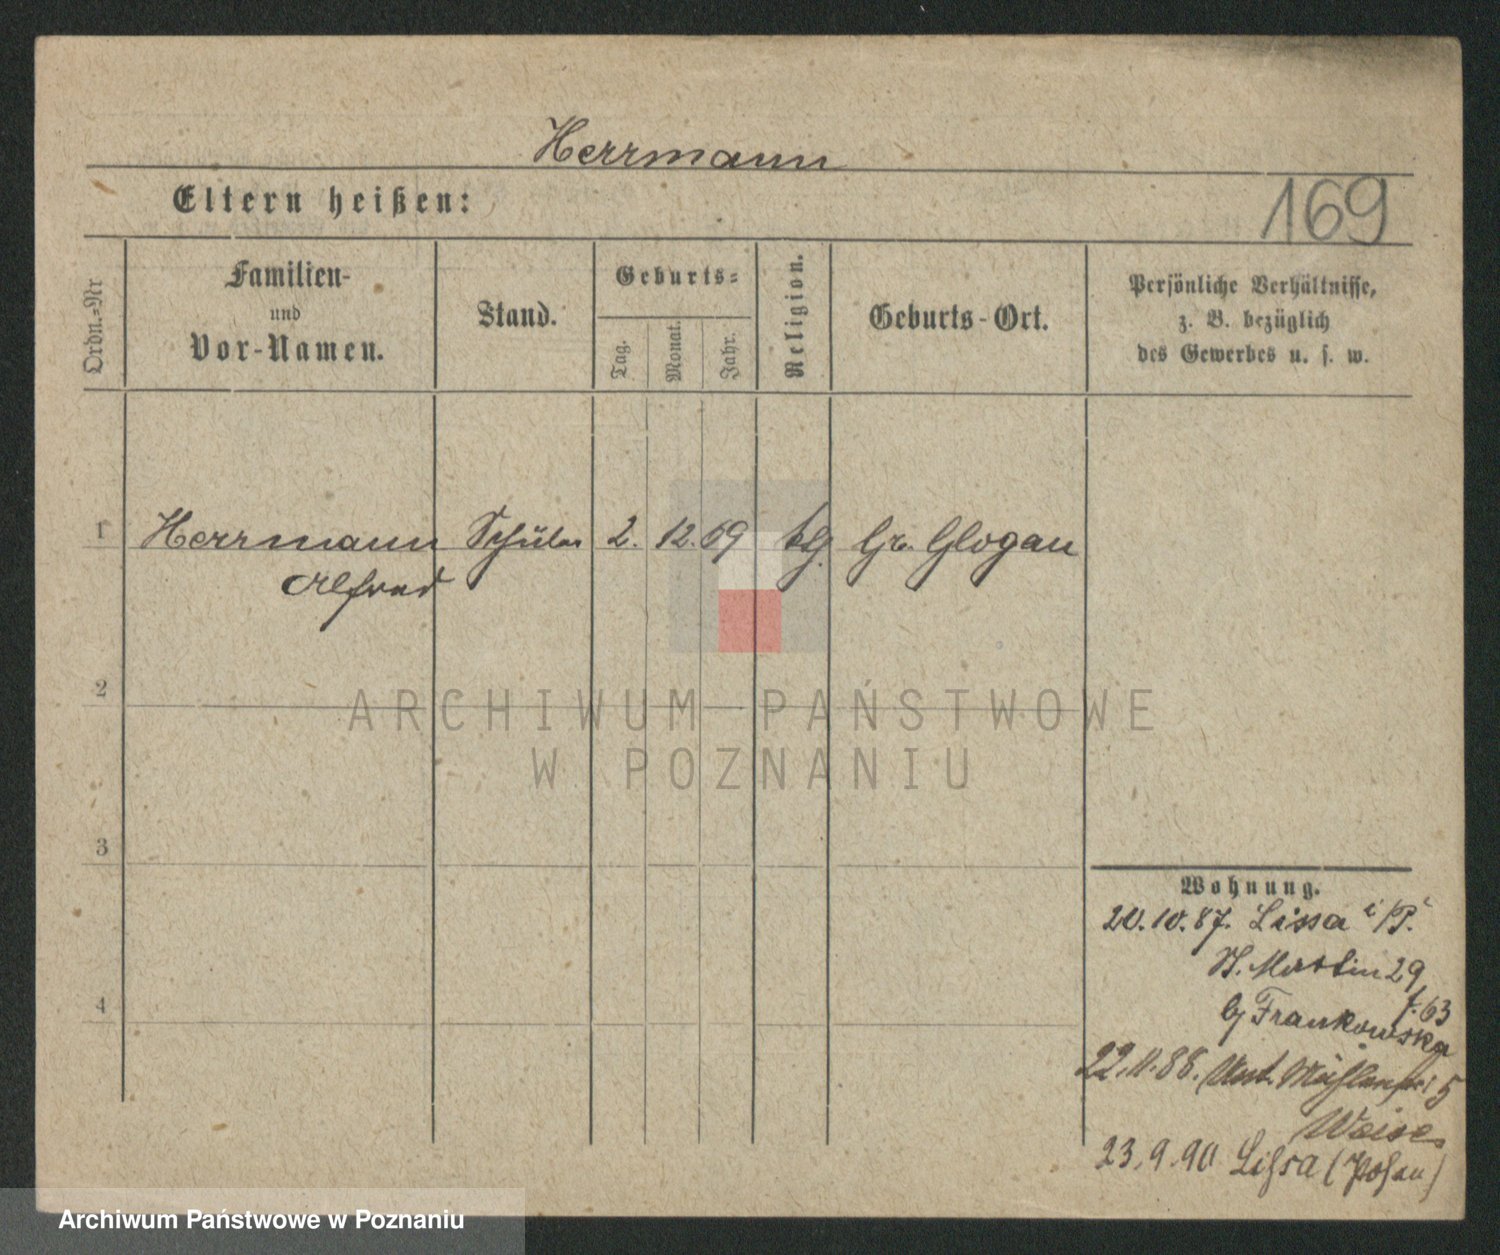 Herrmann
Eltern heißen:
169
Ordn.-Nr
Familien-
und
Vor-Namen.
Stand.
Geburts-
Tag.
Monat.
Jahr.
Religion.
Geburts-Ort.
Persönliche Verhältnisse,
z. B. bezüglich
des Gewerbes u. s. w.
1 Herrmann Schüler 2. 12. 69 Gr. Glogau
Alfred
2
ARCHIWUM PAŃSTWOWE
W POZNANIU
3
4
Wohnung.
20.10.87. Lissa i/P.
St. Martin 29
f. 63
b/ Frankowska
22.11.88. Unt. Mühlenstr 5
Weise
23.9.90 Lissa (Posen)
Archiwum Państwowe w Poznaniu